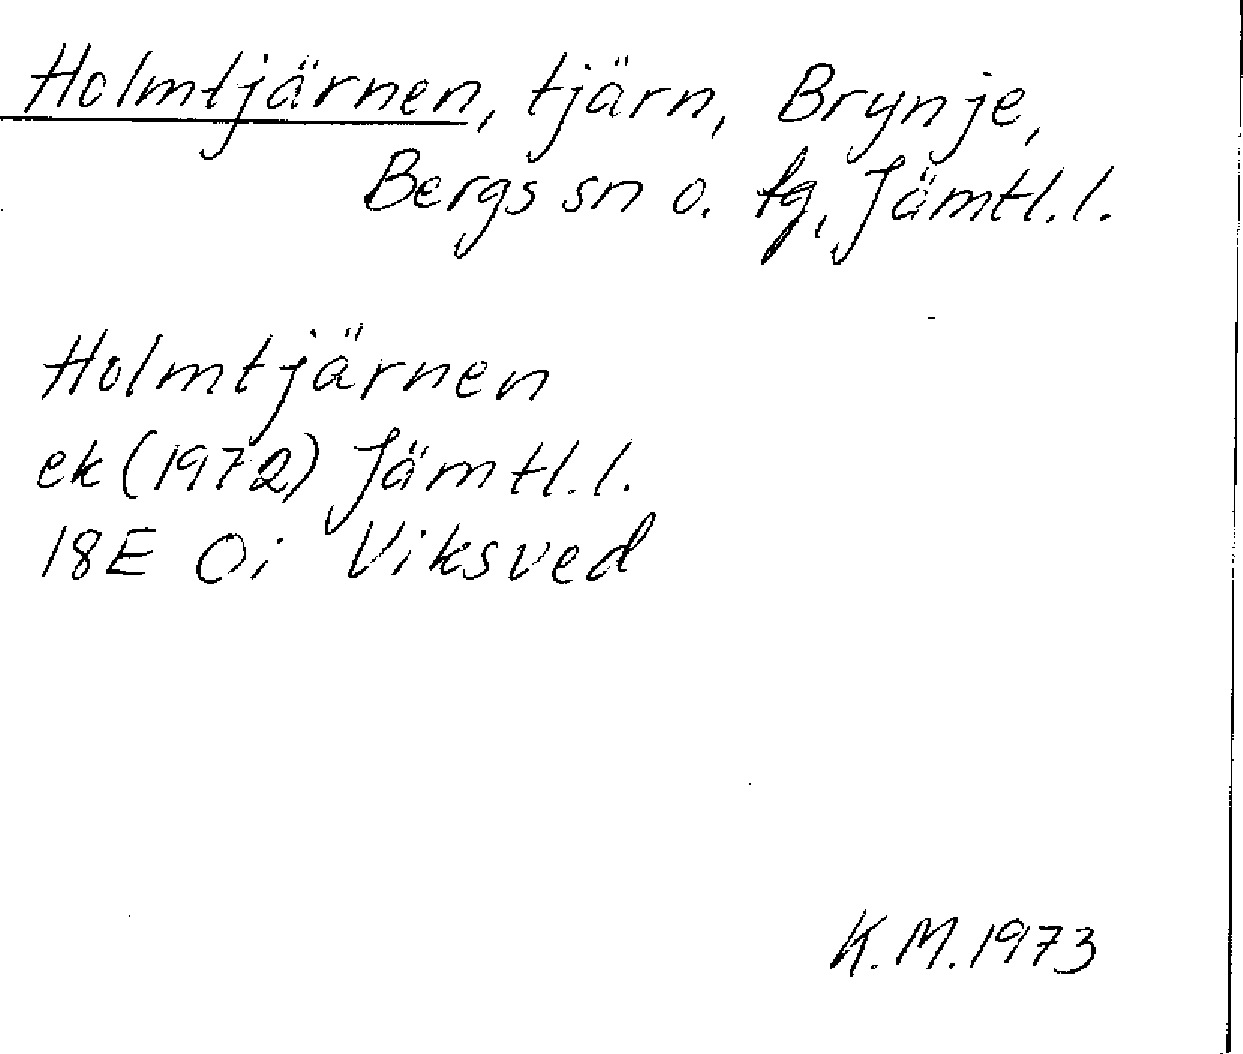 Holmtjärnen, tjärn, Brynje,
Bergs sn o. tg, Jämtl.l.
Holmtjärnen
ek (1972) Jämtl.l.
18E 0i Viksved
K.M.1973